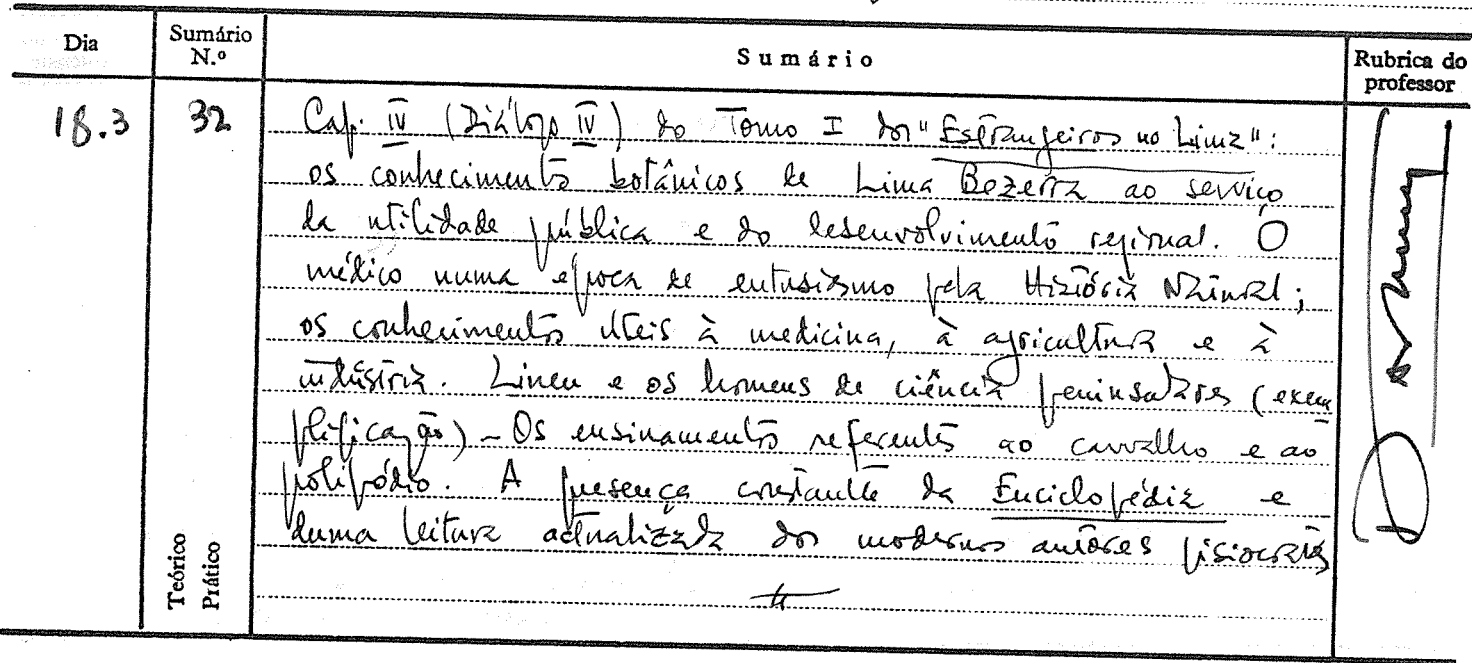 Dia
Sumário N.º
Sumário
Rubrica do professor
18.3
32
Cap. IV (Diálogo IV) do Tomo I dos "Estrangeiros no Lima":
os conhecimentos botânicos de Lima Bezerra ao serviço
da utilidade pública e do desenvolvimento regional. O
médico numa época de entusiasmo pela História Natural;
os conhecimentos úteis à medicina, à agricultura e à
indústria. Lineu e os homens de ciência peninsulares (exem
plificação) - Os ensinamentos referentes ao carvalho e ao
polipódio. A presença constante da Enciclopédia e
duma leitura actualizada dos modernos autores fisiocratas
Teórico
Prático